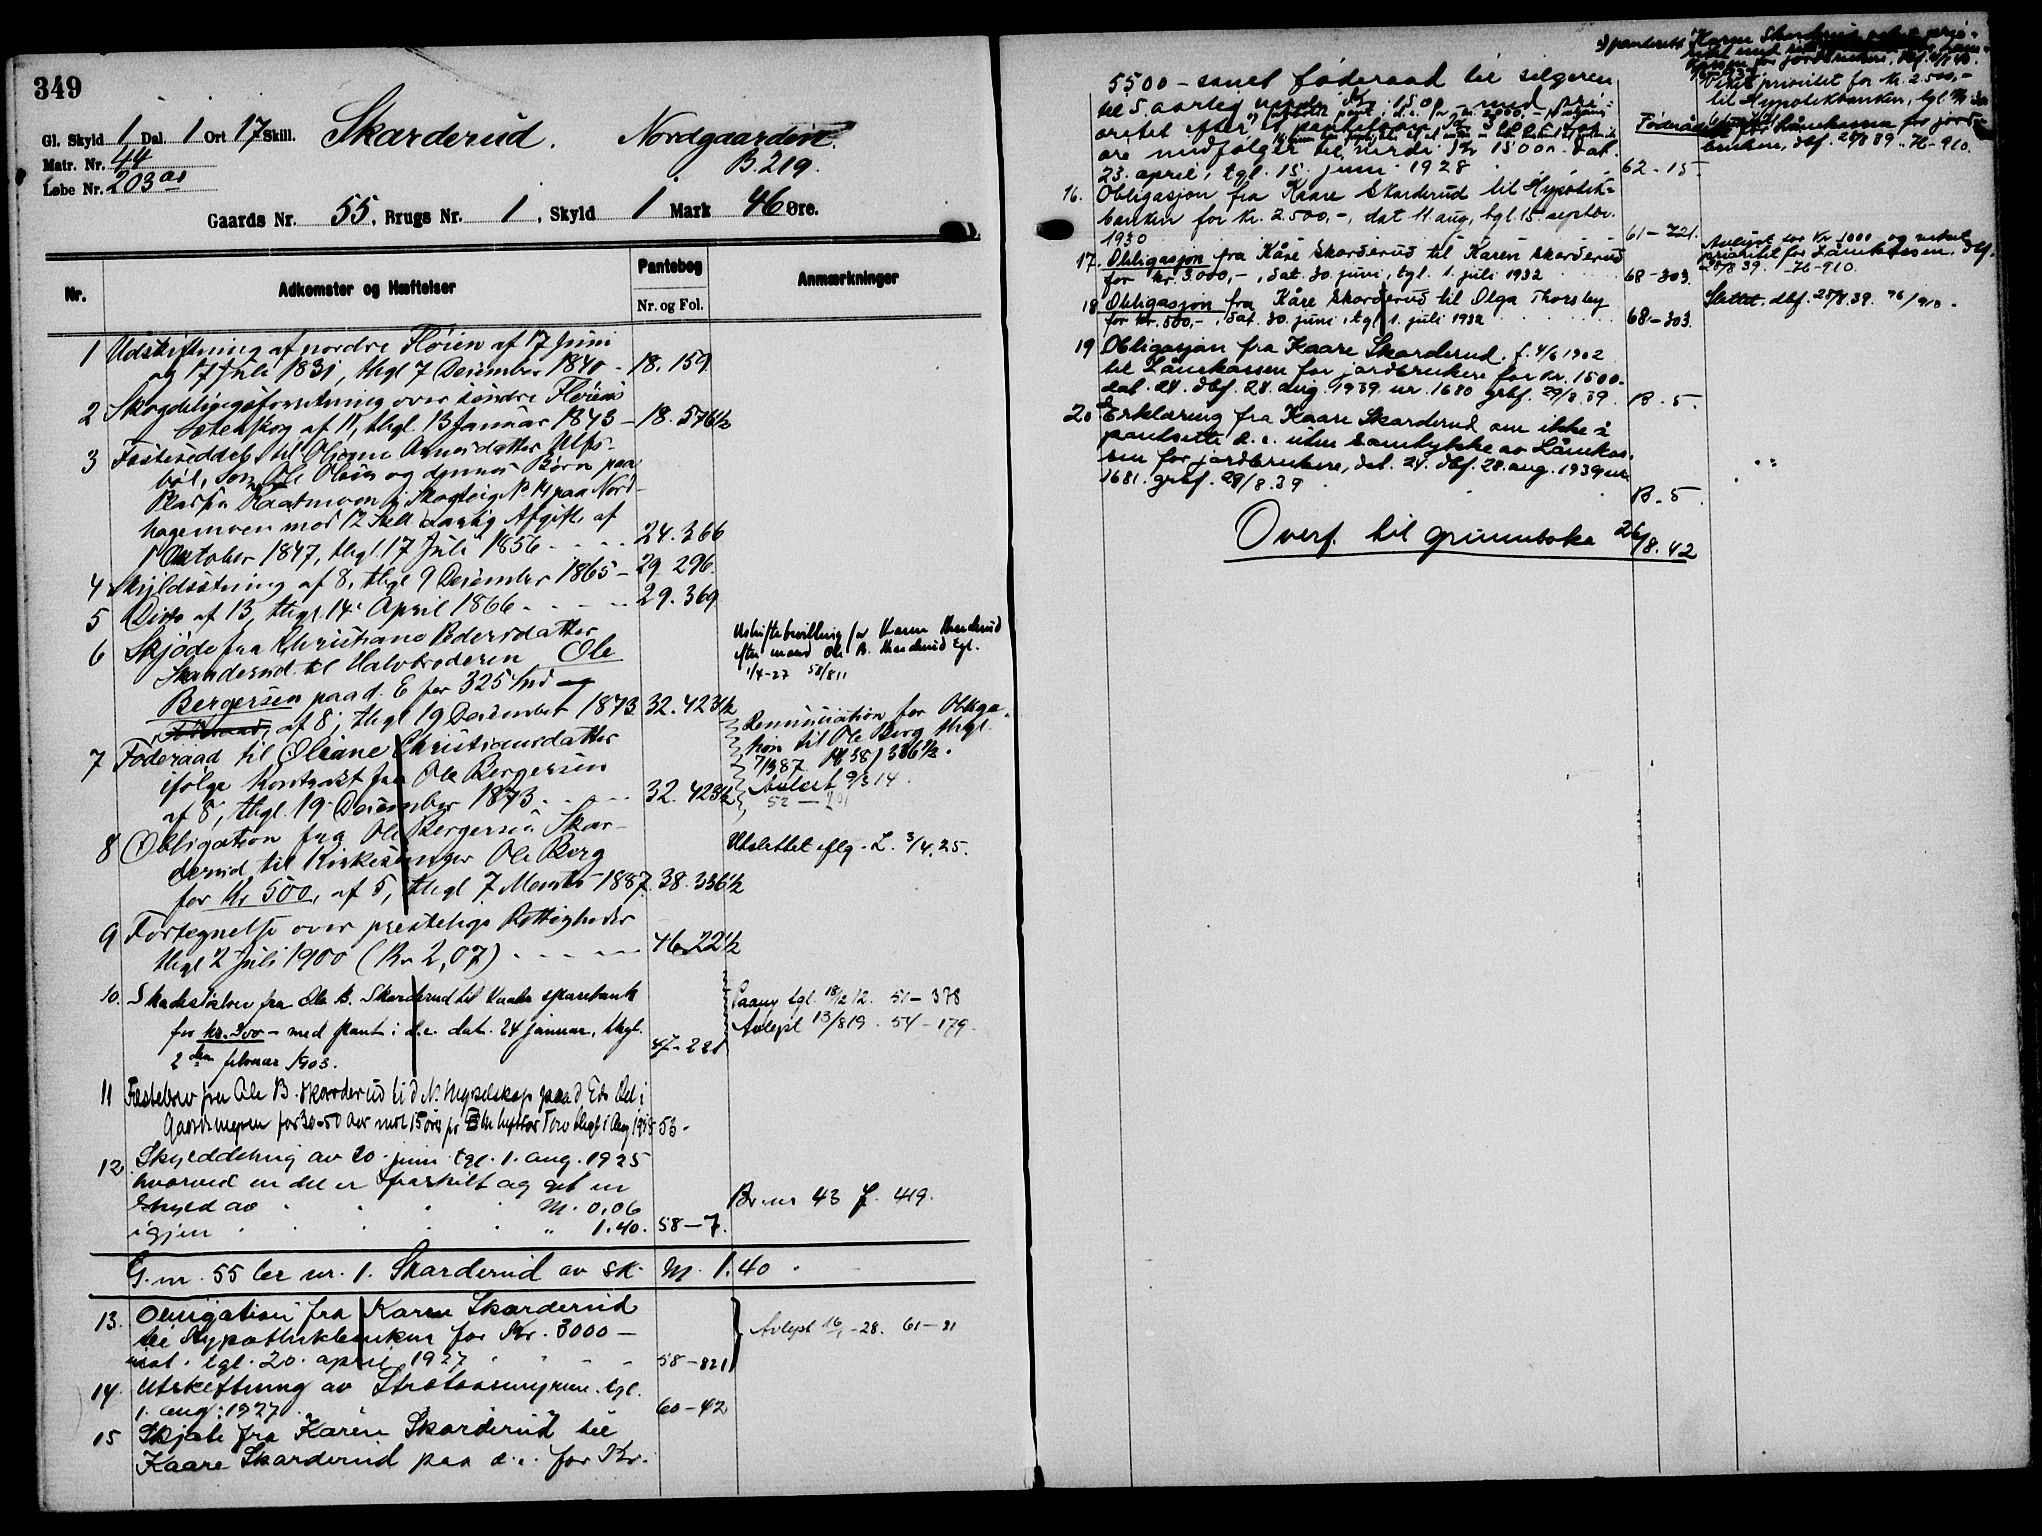 349
Gl. Skyld 1 Dal. 1 Ort 17 Skill. Skarderud. Nordgaarden.
Matr. Nr. 44 B. 219.
Løbe Nr. 203 as
Gaards Nr. 55, Brugs Nr. 1, Skyld 1 Mark 46 Øre.
Nr. Adkomster og Hæftelser Pantebog Nr. og Fol. Anmærkninger
1 Udskiftning af nordre Fløien af 17 Juni
og 17 Juli 1831, thgl 7 December 1840 - 18. 159
2 Skogdelingsforretning over søndre Fløiens
Sæterskog af 11, thgl. 13 Januar 1843 - 18. 576½
3 Fæsteseddel til Oliane Asmundsdatter Ulfs-
bøl, Søn Ole Olsen og dennes Børn paa
Pladsen i Skogteig No 14 paa Nord-
hagemoen mod 12 Skill aarlig Afgift, af
1 Oktober 1847, thgl. 17 Juli 1856 - - - - 24. 366
4 Skyldsætning af 8, thgl 9 December 1865 - 29 296.
5 Ditto af 13, thgl. 14 April 1866 - - - - 29. 369
6 Skjøde fra Christiane Pedersdatter
Skarderud til Halvbroderen Ole
Bergersen paa d. E for 325 Spd
af 8, thgl 19 December 1873 32. 423½
Uskiftebevilling for Karen Skarderud
efter mand Ole B. Skarderud tgl.
1/4-27 58/811
7 Føderaad til Oliane Christiansdatter
ifølge Kontrakt fra Ole Bergersen
af 8, thgl. 19 December 1873 - - - 32. 423½
Renunciation for Obliga-
tion til Ole Berg thgl.
7/3 87. 38/336½.
Avlæst 9/3 14.
52 —
8 Obligation fra Ole Bergersen Skar-
derud til Kirkesanger Ole Berg
for Kr 500, af 5, thgl 7 Marts 1887. 38. 336½
Utslettet iflg. L. 3/4. 25.
9 Fortegnelse over prestelige Rettigheder
thgl 2 Juli 1900 (Kr 2,07) - - - - - 46. 22½
10. Skadesløsbrev fra Ole B. Skarderud til Vaaler sparebank
for kr. 300 - med pant i d.e. dat. 24 januar, thgl.
2den februar 1903. 47 - 221
tgl. 18/12 12. 51 - 378
Avlyst 13/8 19. 54 - 179.
11 Fæstebrev fra Ole B. Skarderud til d. N. Myrselskap paa d Eds Del i
Gaardsmyren for 30-50 Aar mot 15 øre pr Torv thgl 1 Aug 1918 53 -
12 Skylddeling av 20. juni tgl. 1. aug. 1925
hvorved en del er fraskilt og git en
skyld av . . . M. 0.06 Br. nr 43 f. 419.
igjen . . . . . " 1.40. 58 - 7.
G. nr. 55 br nr. 1. Skarderud av sk. M. 1.40.
13. Obligation fra Karen Skarderud
til Hypothekbanken for Kr. 3000 —
dat. tgl. 20. april 1927 . . . . 58 - 821
Avlyst 16/ - 28. 61 - 21
14. Utskiftning av Strætaasmyrene tgl.
1. aug. 1927 60 - 42
15 Skjøte fra Karen Skarderud til
Kaare Skarderud paa d. e. for Kr.
5500 - samt føderaad til selgeren
til 5 aarlig værdi Kr. 1500 - med pri-
oritet efter
øre medfølger til værdi Kr 1500. - dat.
23. april, tgl. 15. juni 1928 62 - 15.
Karen Skarderud
Veket prioritet for kr. 2500,-
til Hypotekbanken, tgl 15/9 30
Føderådet for Lånekassa for jord-
bruken, dbf. 28/8 39. 76 - 910.
16. Obligasjon fra Kaare Skarderud til Hypotek-
banken for Kr. 2.500,-, dat 11. aug, tgl. 15. septbr.
1930 61 - 721.
17. Obligasjon fra Kåre Skarderud til Karen Skarderud
for kr. 3.000,-, dat. 30. juni, tgl. 1. juli 1932 68 - 303.
Avlyst for kr 1000 - og veket
prioritet for Lånekassen. dbf.
28/8 39. 76 - 910.
18. Obligasjon fra Kåre Skarderud til Olga Thorsby
for kr. 500,-, dat. 30. juni, tgl. 1. juli 1932 68 - 303.
Slettet. dbf. 28/8. 39. 76/910.
19 Obligasjon fra Kaare Skarderud. f. 4/6 1902
til Lånekassen for jordbrukere for kr. 1500.
dat. 24. dbf. 28. aug. 1939 nr. 1680 grbf. 29/8. 39. B. 5.
20 Erklæring fra Kaare Skarderud om ikke å
pantsette d. e. uten samtykke av Lånekas-
sen for jordbrukere, dat. 24. dbf. 28. aug. 1939 nr.
1681. grbf. 29/8. 39 B. 5.
Overf. til grunnboka 26/8. 42